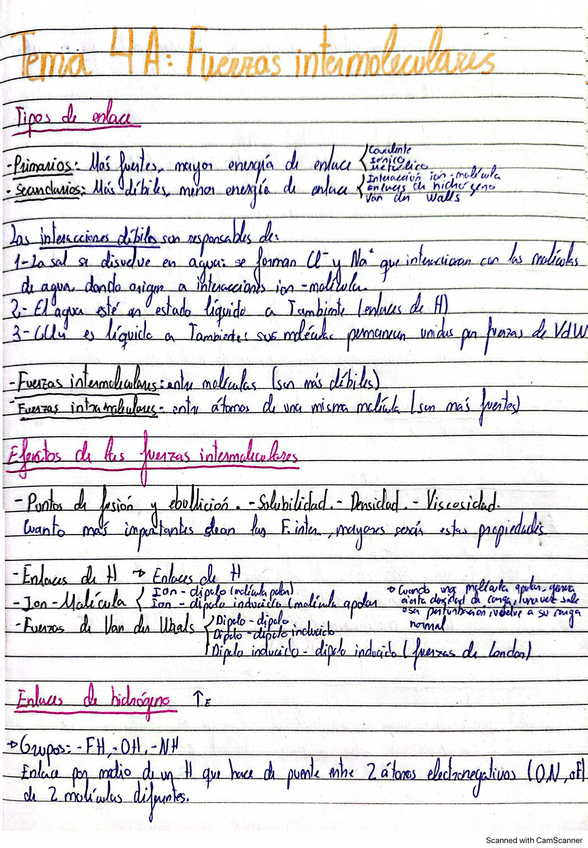 Tema 4A: Fuerzas intermoleculares
Tipos de enlace
- Primarios: Más fuertes, mayor energía de enlace
Covalente
Iónico
Metálico
- Secundarios: Más débiles, menor energía de enlace
Interacción ion-molécula
enlaces de hidrógeno
Van der Walls
Las interacciones débiles son responsables de:
1- La sal se disuelve en agua: se forman Cl⁻ y Na⁺ que interaccionan con las moléculas
de agua dando origen a interacciones ion-molécula.
2- El agua esté en estado líquido a Tambiente (enlaces de H)
3- CCl4 es líquido a Tambiente: sus moléculas permanecen unidas por fuerzas de VdW
- Fuerzas intermoleculares: entre moléculas (son más débiles)
- Fuerzas intramoleculares- entre átomos de una misma molécula (son más fuertes)
Efectos de las fuerzas intermoleculares
- Puntos de fusión y ebullición. - Solubilidad. - Densidad. - Viscosidad.
Cuanto más importantes sean las F.inter, mayores serán estas propiedades.
- Enlaces de H → Enlaces de H
- Ion-Molécula
Ion-dipolo (molécula polar)
Ion-dipolo inducido (molécula apolar
→ Cuando una molécula apolar, genera
cierta densidad de carga, una vez sale
esa perturbación, vuelve a su carga
normal
- Fuerzas de Van der Waals
Dipolo-dipolo
Dipolo-dipolo inducido
Dipolo inducido-dipolo inducido (fuerzas de London)
Enlaces de hidrógeno ↑E
→ Grupos: -FH, -OH, -NH
Enlace por medio de un H que hace de puente entre 2 átomos electronegativos (O,N, oF)
de 2 moléculas diferentes.
Scanned with CamScanner